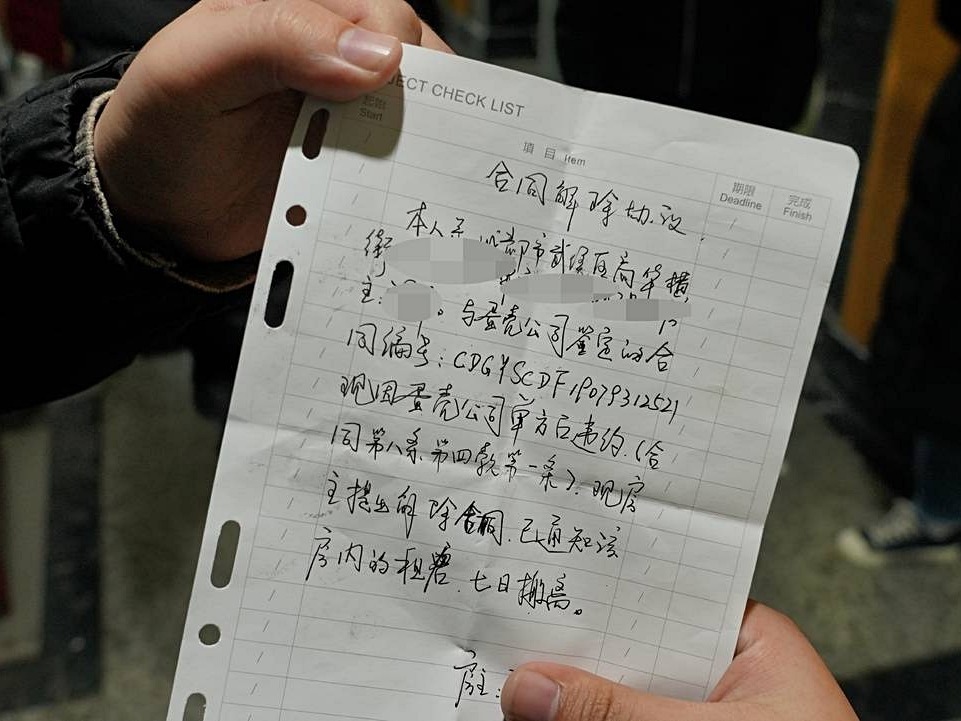 JECT CHECK LIST
起始
Start
項目 Item
期限
Deadline
完成
Finish
合同解除协议
本人系 成都市武侯区高华横
街
主: 。与蛋壳公司鉴定的合
同编号:CDGYSCDF19079312521
现因蛋壳公司单方已违约.(合
同第八条第四款第一条).现房
主提出解除合同.已通知该
房内的租客.七日搬离。
房主: